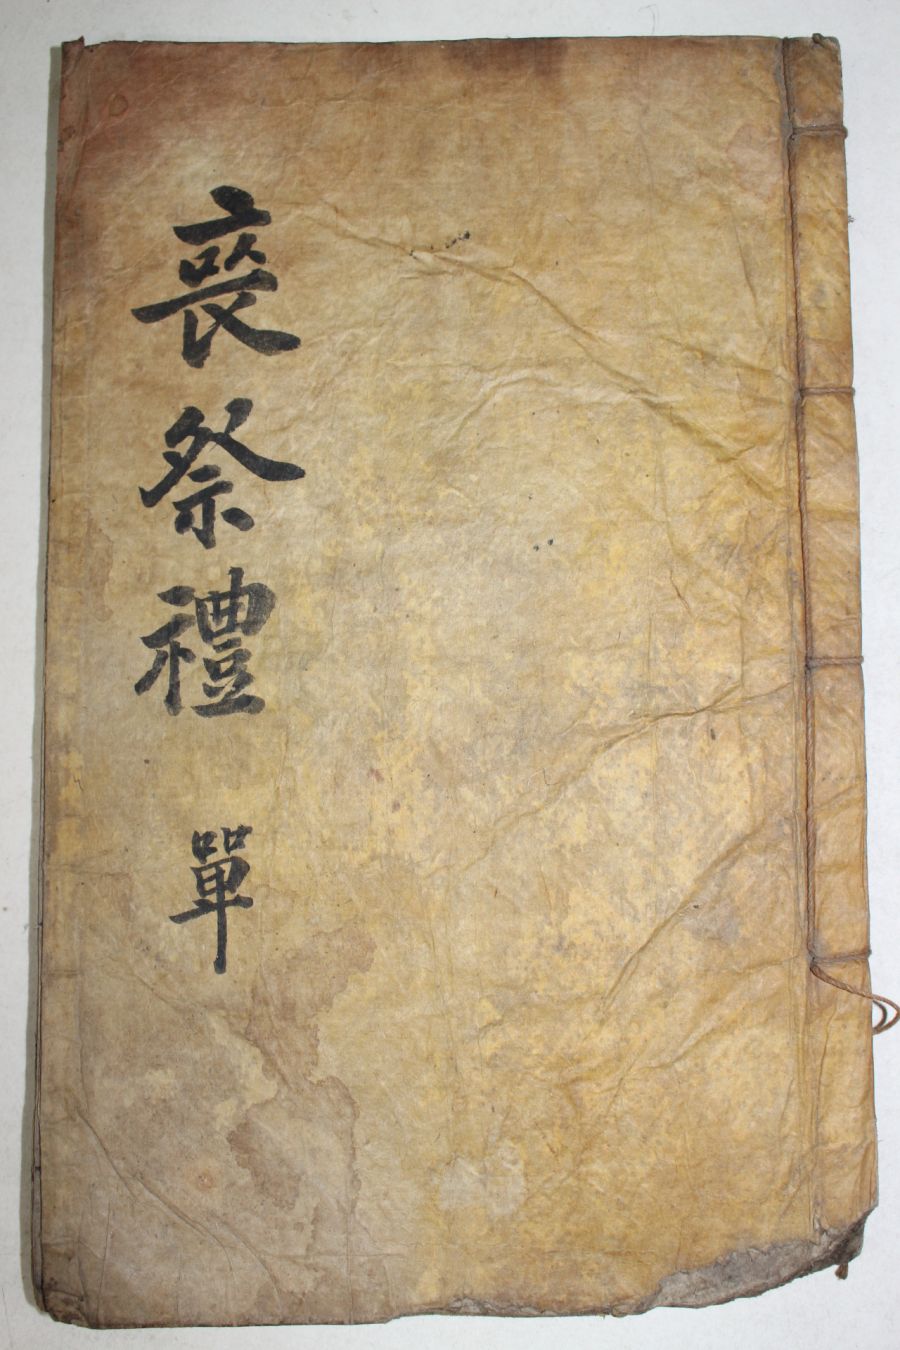 喪祭禮 單